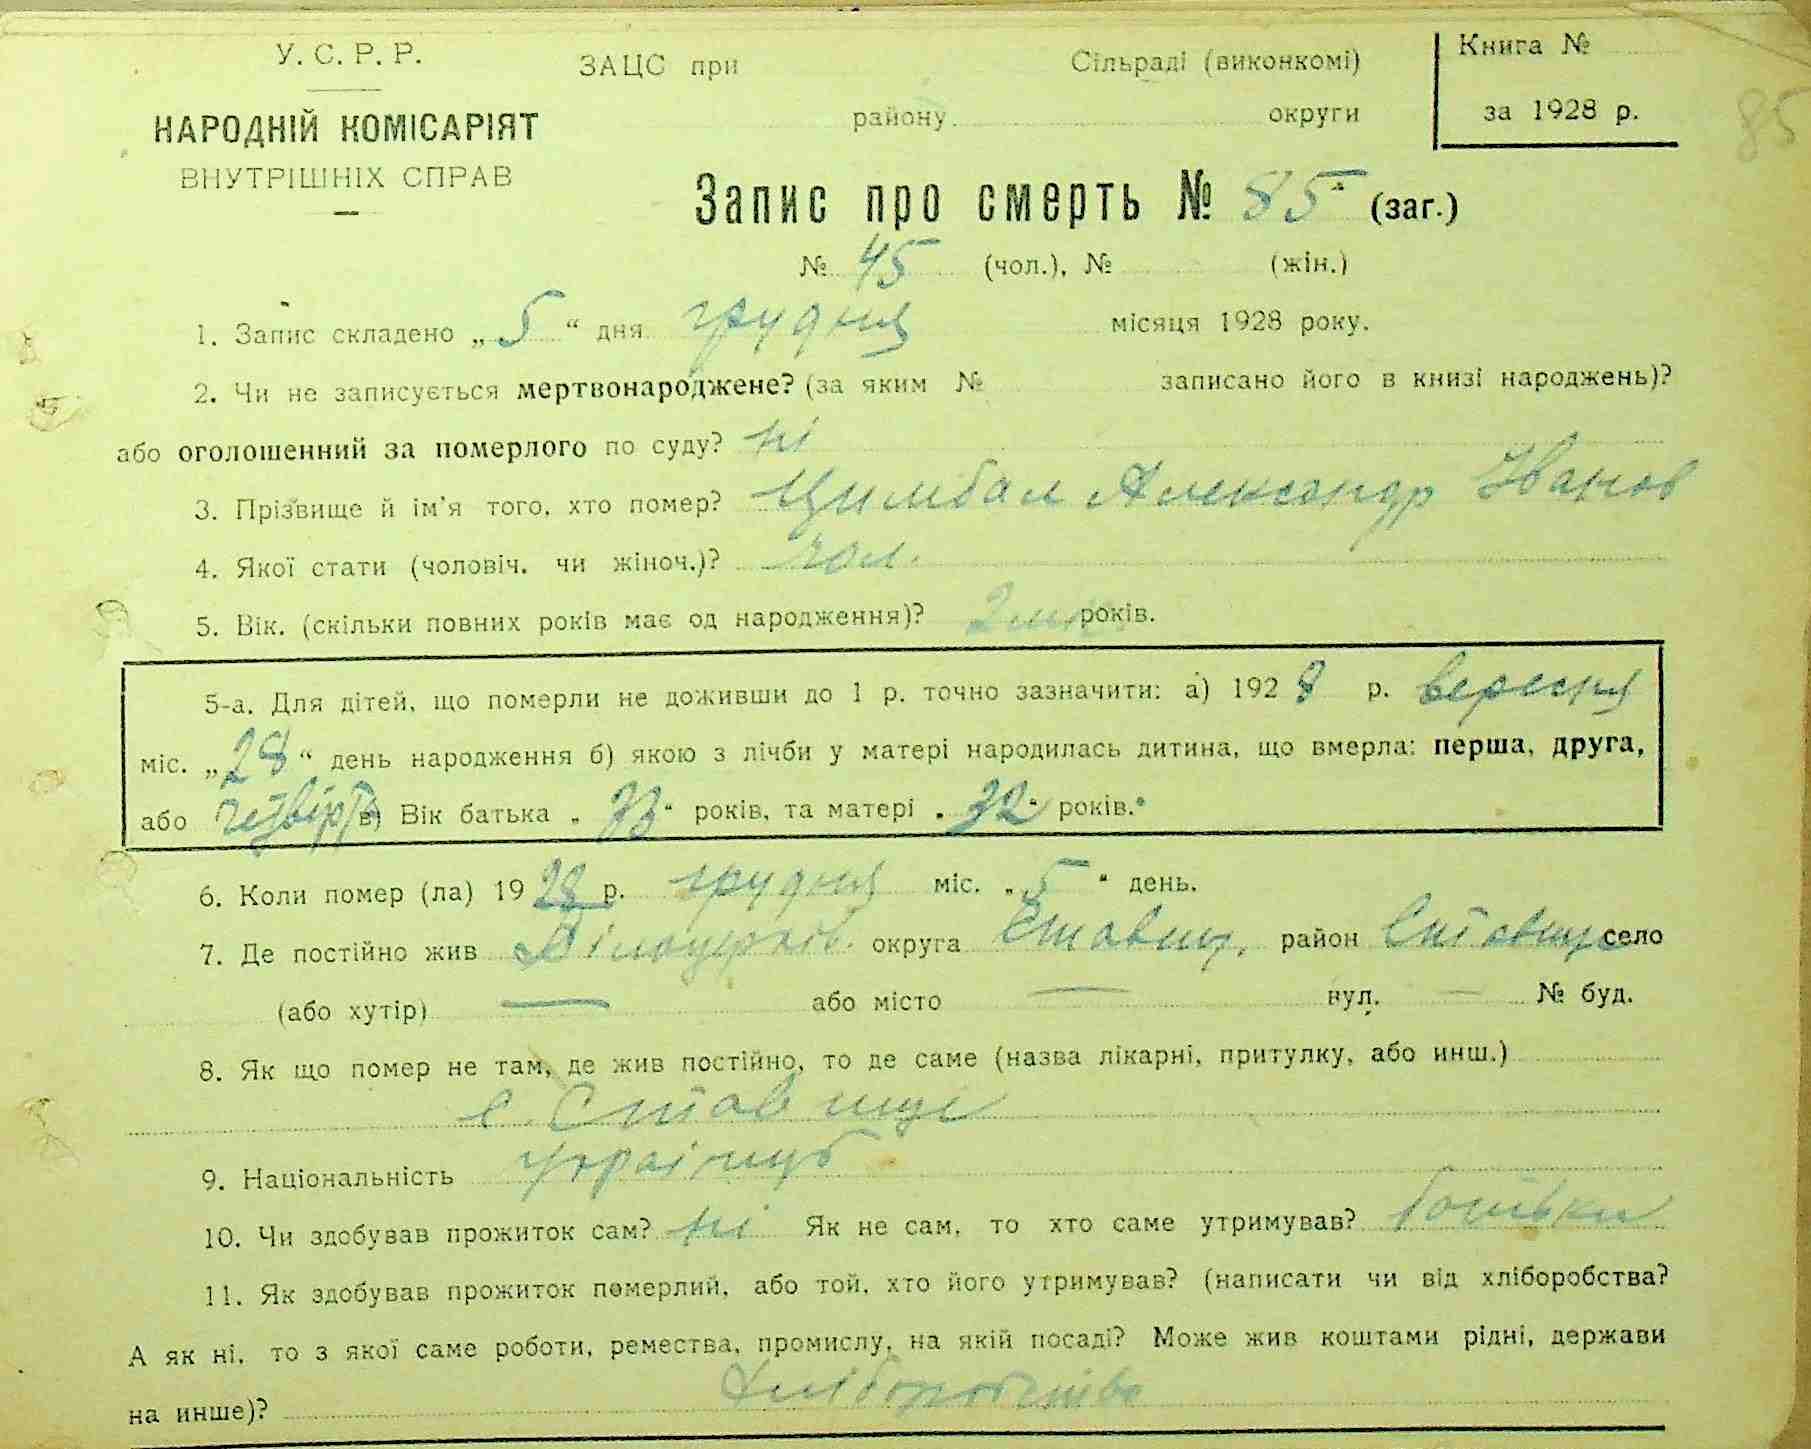 У. С. Р. Р.
НАРОДНІЙ КОМІСАРІЯТ
ВНУТРІШНІХ СПРАВ
ЗАЦС при Сільраді (виконкомі)
району округи
Книга №
за 1928 р.
85
Запис про смерть № 85 (заг.)
№ 45 (чол.), № (жін.)
1. Запис складено „ 5 “ дня грудня місяця 1928 року.
2. Чи не записується мертвонароджене? (за яким № записано його в книзі народжень)?
або оголошенний за померлого по суду? ні
3. Прізвище й ім'я того, хто помер? Цимбал Александр Иванов
4. Якої стати (чоловіч. чи жіноч.)? чол.
5. Вік. (скільки повних років має од народження)? 2 років.
5-а. Для дітей, що померли не доживши до 1 р. точно зазначити: а) 1928 р. вересня
міс. „ 28 “ день народження б) якою з лічби у матері народилась дитина, що вмерла: перша, друга,
або четвірта в) Вік батька „ 33 “ років, та матері „ 32 “ років.
6. Коли помер (ла) 1928 р. грудня міс. „ 5 “ день.
7. Де постійно жив Білоцерків. округа Ставищ. район Ставище село
(або хутір) — або місто — вул. — № буд.
8. Як що помер не там, де жив постійно, то де саме (назва лікарні, притулку, або инш.)
с. Ставище
9. Національність українць
10. Чи здобував прожиток сам? ні Як не сам, то хто саме утримував? батьки
11. Як здобував прожиток померлий, або той, хто його утримував? (написати чи від хліборобства?
А як ні, то з якої саме роботи, ремества, промислу, на якій посаді? Може жив коштами рідні, держави
на инше)? Хліборобство